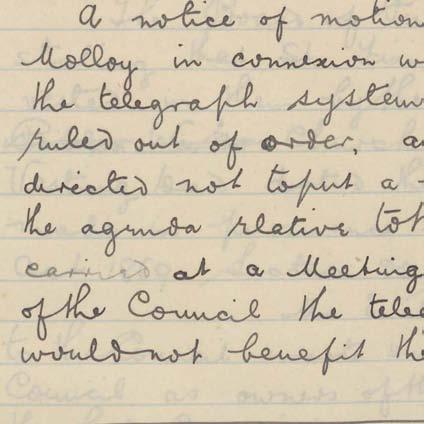 A notice of motion
Molloy in connexion w
the telegraph system
ruled out of order, a
directed not to put a
the agenda relative to t
carried at a Meeting
of the Council the tele
would not benefit the
Council as owners of th